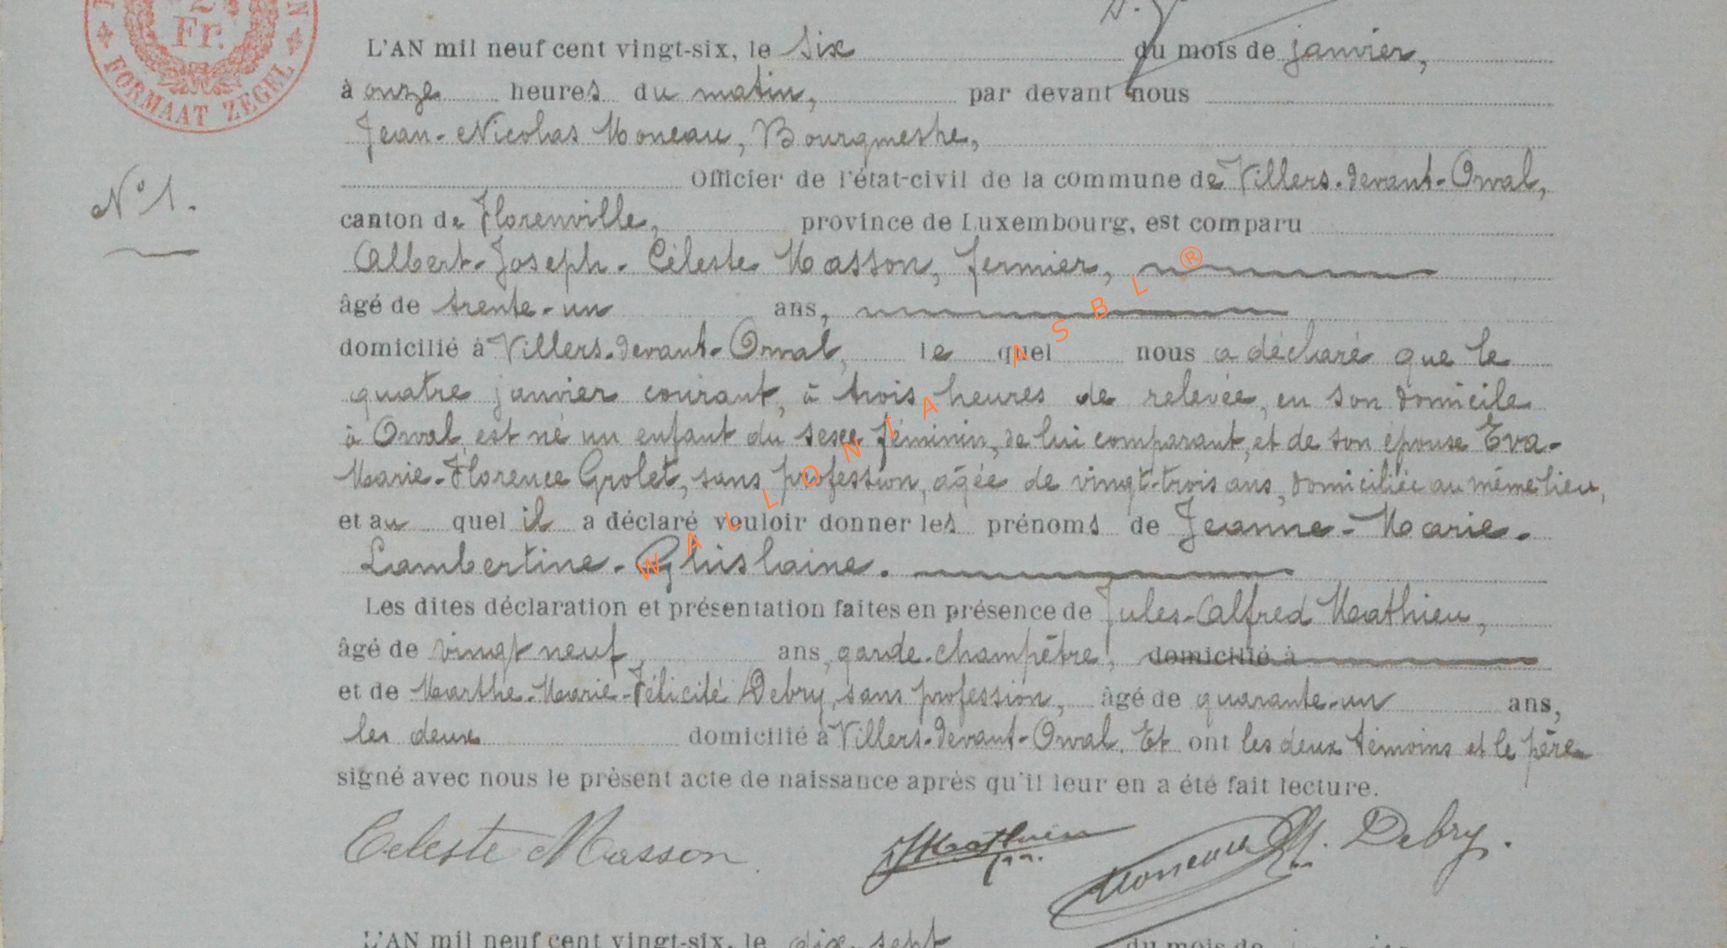 2
Fr.
FORMAAT ZEGEL
L'AN mil neuf cent vingt-six, le six du mois de janvier,
à onze heures du matin, par devant nous
Jean-Nicolas Moneau, Bourgmestre,
Officier de l'état-civil de la commune de Villers-devant-Orval,
N° 1.
canton de Florenville, province de Luxembourg, est comparu
Albert-Joseph-Céleste Masson, fermier,
âgé de trente-un ans,
domicilié à Villers-devant-Orval, le quel nous a déclaré que le
quatre janvier courant, à trois heures de relevée, en son domicile
à Orval, est né un enfant du sexe féminin, de lui comparant, et de son épouse Eva-
Marie-Florence Grolet, sans profession, âgée de vingt-trois ans, domiciliée au même lieu,
et au quel il a déclaré vouloir donner les prénoms de Jeanne-Marie-
Lambertine-Ghislaine.
WALLONIA ASBL ®
Les dites déclaration et présentation faites en présence de Jules-Alfred Mathieu,
âgé de vingt neuf ans, garde-champêtre, domicilié à
et de Marthe-Marie-Félicité Debry, sans profession, âgé de quarante-un ans,
les deux domicilié à Villers-devant-Orval. Et ont les deux témoins et le père
signé avec nous le présent acte de naissance après qu'il leur en a été fait lecture.
Celeste Masson JMathieu Moneau M. Debry.
L'AN mil neuf cent vingt-six, le dix-sept du mois de janvier